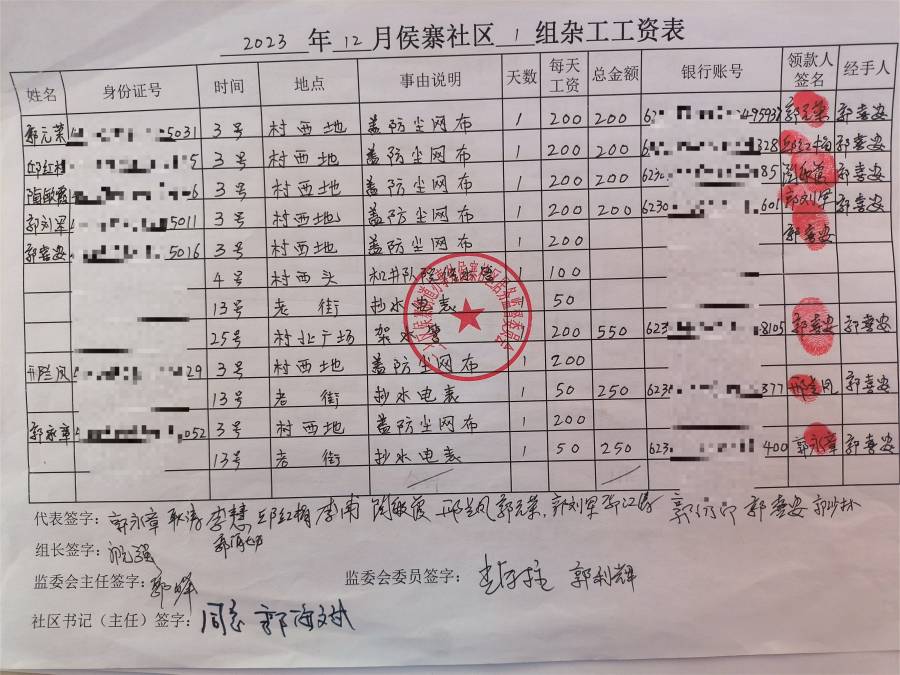 2023 年 12 月侯寨社区 1 组杂工工资表
姓名 身份证号 时间 地点 事由说明 天数 每天工资 总金额 银行账号 领款人签名 经手人
郭元荣 5031 3号 村西地 盖防尘网布 1 200 200 62 495937 郭元荣 郭喜安
邱红梅 5 3号 村西地 盖防尘网布 1 200 200 6 328 邱红梅 郭喜安
陶敏霞 6 3号 村西地 盖防尘网布 1 200 200 623 85 陶敏霞 郭喜安
郭刘军 5011 3号 村西地 盖防尘网布 1 200 200 6230 601 郭刘军 郭喜安
郭喜安 5016 3号 村西地 盖防尘网布 1 200 郭喜安
4号 村西头 1 100
13号 老街 抄水电表 1 50
25号 村北广场 架水管 1 200 550 623 8105 郭喜安 郭喜安
29 3号 村西地 盖防尘网布 1 200
13号 老街 抄水电表 1 50 250 623 377 郭喜安
郭永章 052 3号 村西地 盖防尘网布 1 200
13号 老街 抄水电表 1 50 250 623 400 郭永章 郭喜安
代表签字: 郭永章 李慧 邱红梅 李甫 陶敏霞 郭元荣 郭刘军 郭喜安
组长签字:
监委会主任签字: 监委会委员签字: 郭利辉
社区书记(主任)签字: 同意 郭海斌